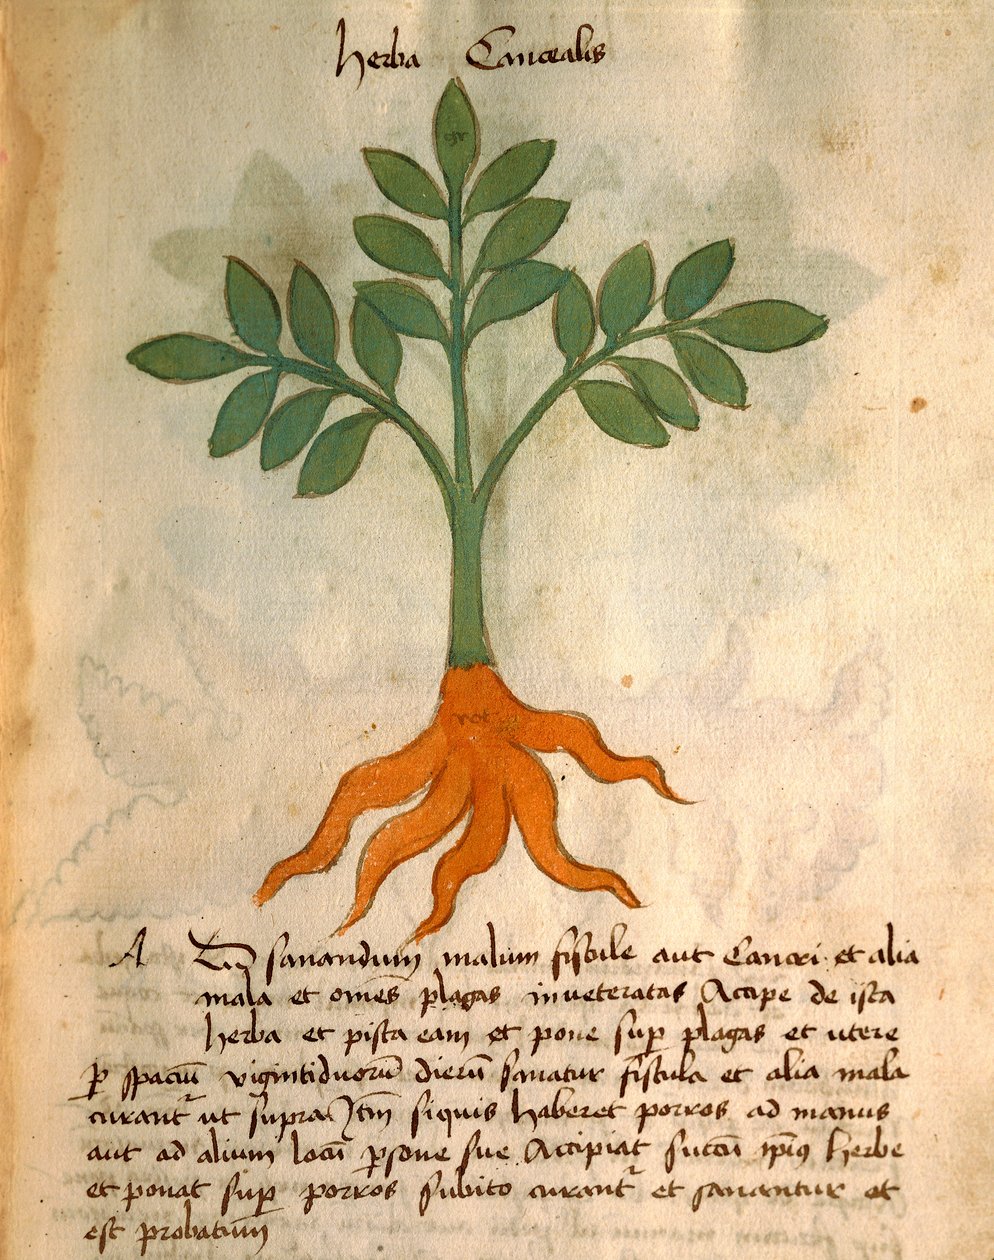 herba Caucealis
gr
rot
A Ad sanandum malum fistule aut Cancri et alia
mala et om̄es plagas inueteratas Accipe de ista
herba et pista eam et pone sup plagas et utere
p spaciū vigintiduorū dierū sanatur fistula et alia mala
curantr ut supra Itm̄ siquis haberet porros ad manus
aut ad alium locū psone sue Accipiat succū ipiꝰ herbe
et ponat sup porros subito curantr et sanantur et
est probatum